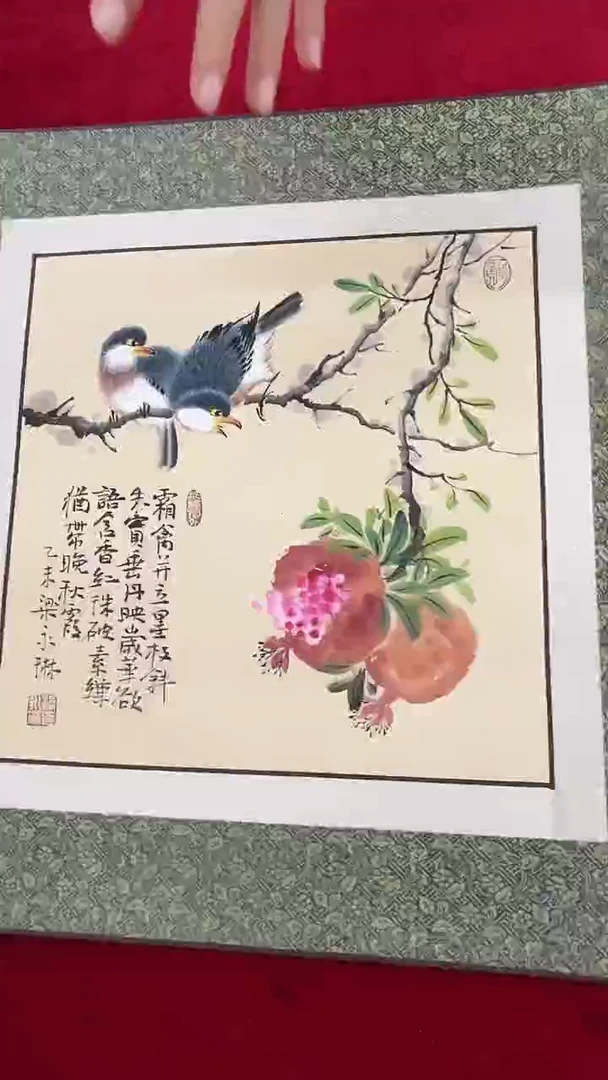 霜禽並立墨枝斜
朱實垂丹映歲華欲
語含香紅珠破素纏
猶帶晚秋霞
乙未梁永琳